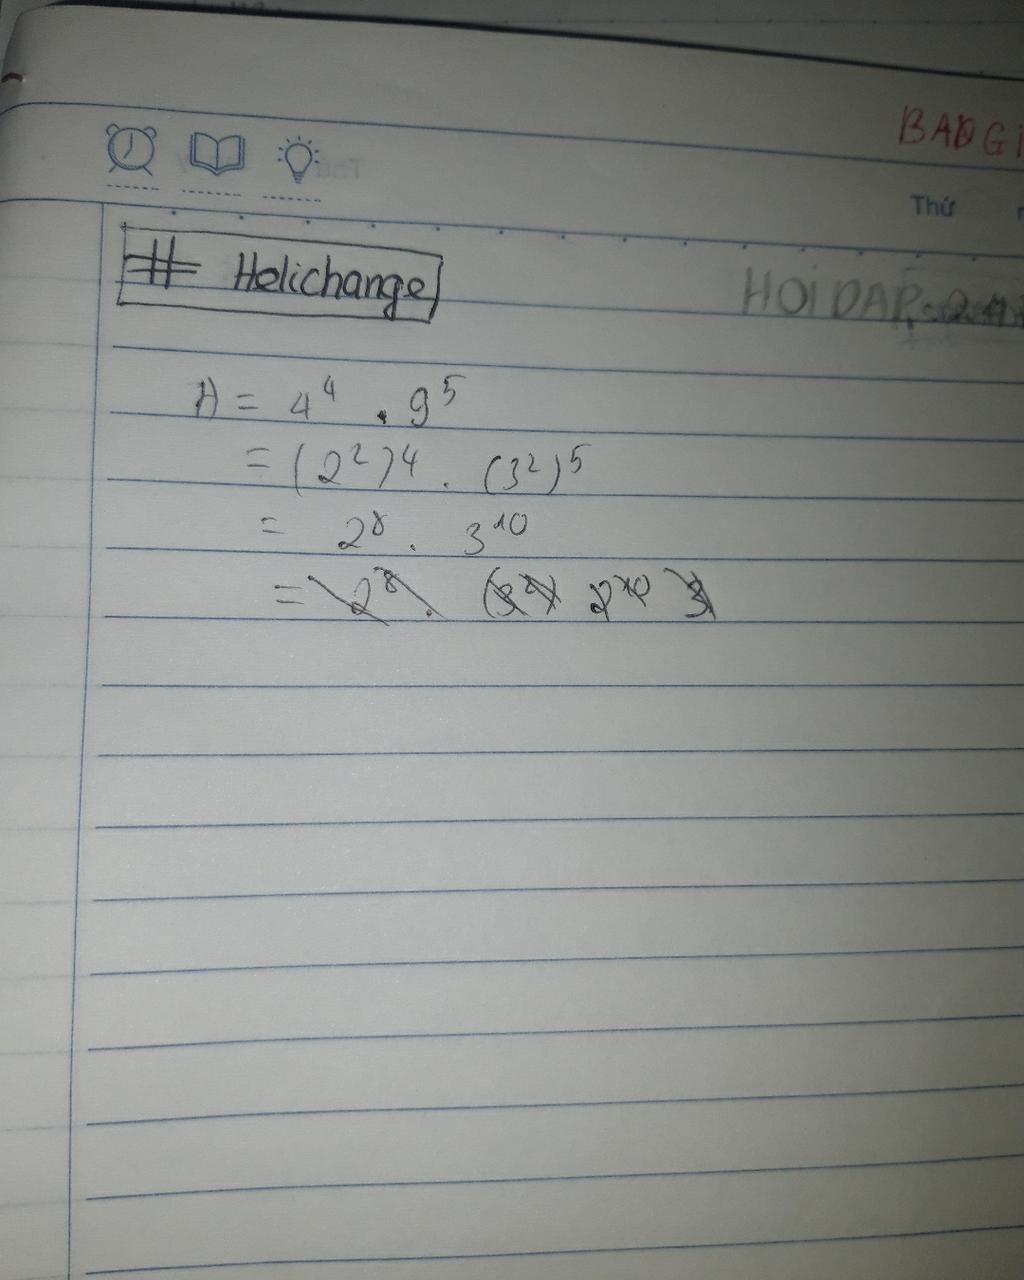 BAO GI
Thứ
# Helichange
HOI DAP
A = 4⁴ . 9⁵
= (2²)⁴ . (3²)⁵
= 2⁸ . 3¹⁰
=